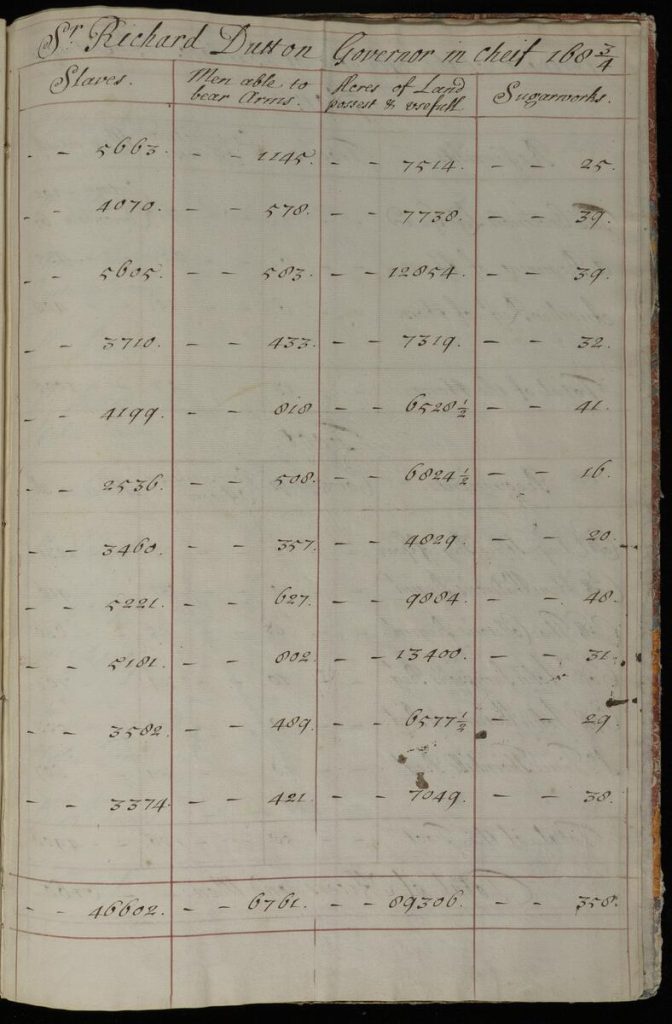 Sr. Richard Dutton Governor in cheif 168 3/4
Slaves. Men able to bear Arms. Acres of Land possest & usefull Sugarworks.
- - 5663. - - 1145. - - 7514. - - 25.
- - 4070. - - 578. - - 7738. - - 39.
- - 5605. - - 583. - - 12854. - - 39.
- - 3710. - - 433. - - 7319. - - 32.
- - 4199. - - 818 - - 6528 1/2 - - 41.
- - 2536. - - 508. - - 6824 1/2 - - 16.
- - 3460. - - 357. - - 4829. - - 20.
- - 5221. - - 627. - - 9884. - - 48.
- - 5181. - - 802. - - 13400. - - 31.
- - 3582. - - 489. - - 6577 1/2 - - 29.
- - 3374. - - 421. - - 7049. - - 38.
- - 46602. - - 6761. - - 89306. - - 358.